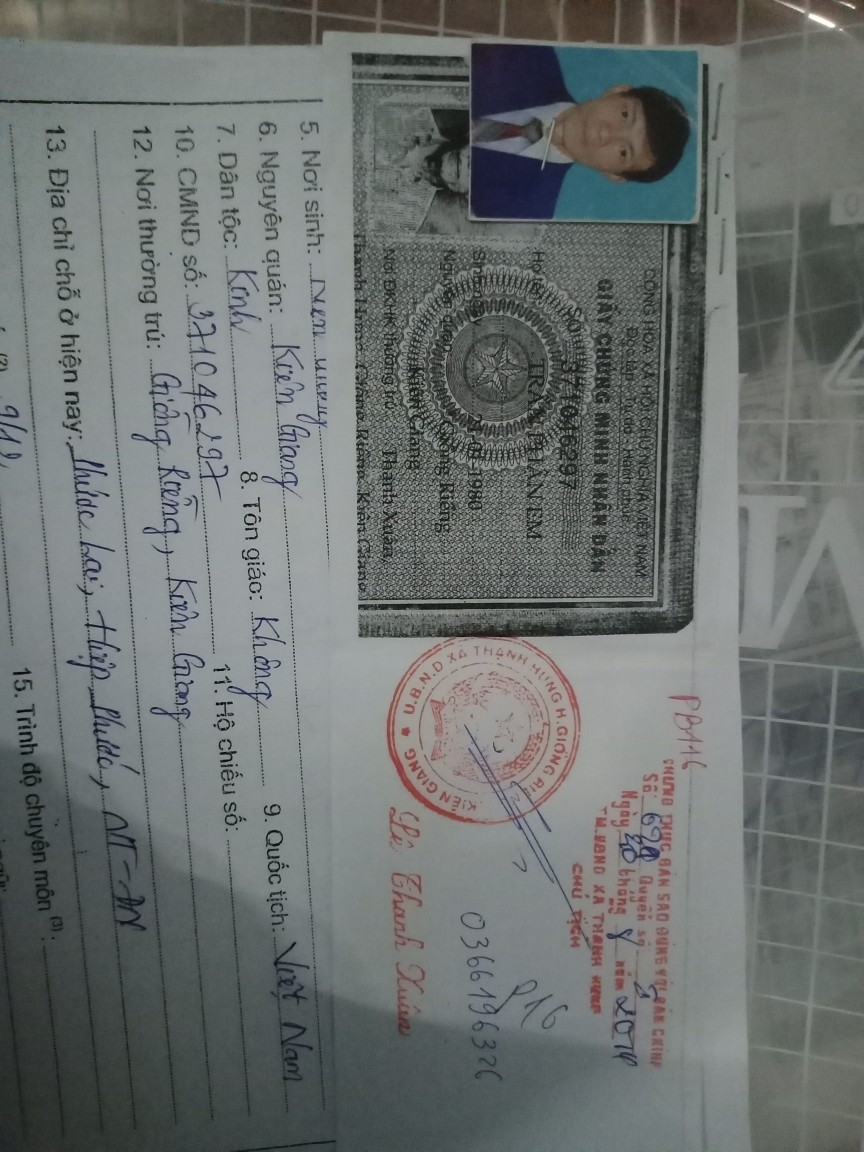 CỘNG HÒA XÃ HỘI CHỦ NGHĨA VIỆT NAM
Độc lập - Tự do - Hạnh phúc
GIẤY CHỨNG MINH NHÂN DÂN
SỐ 371046297
Họ tên TRẦN PHÁN EM
Sinh ngày 1980
Nguyên quán Giồng Riềng
Kiên Giang
Nơi ĐKHK thường trú Thạnh Xuân,
Thạnh Hưng, Giồng Riềng, Kiên Giang
PB116
CHỨNG THỰC BẢN SAO ĐÚNG VỚI BẢN CHÍNH
Số: Quyển số
Ngày 30 tháng năm 2014
TM.UBND XÃ THẠNH HƯNG
CHỦ TỊCH
U.B.N.D XÃ THẠNH HƯNG H.GIỒNG
KIÊN GIANG
Lê Thanh Xuân
916
0366196326
5. Nơi sinh:
6. Nguyên quán: Kiên Giang
7. Dân tộc: Kinh 8. Tôn giáo: Không 9. Quốc tịch: Việt Nam
10. CMND số: 371046297 11. Hộ chiếu số:
12. Nơi thường trú: Giồng Riềng, Kiên Giang
13. Địa chỉ chỗ ở hiện nay: Phước Lai, Hiệp Phước, NT-ĐN
9/12 15. Trình độ chuyên môn (3):